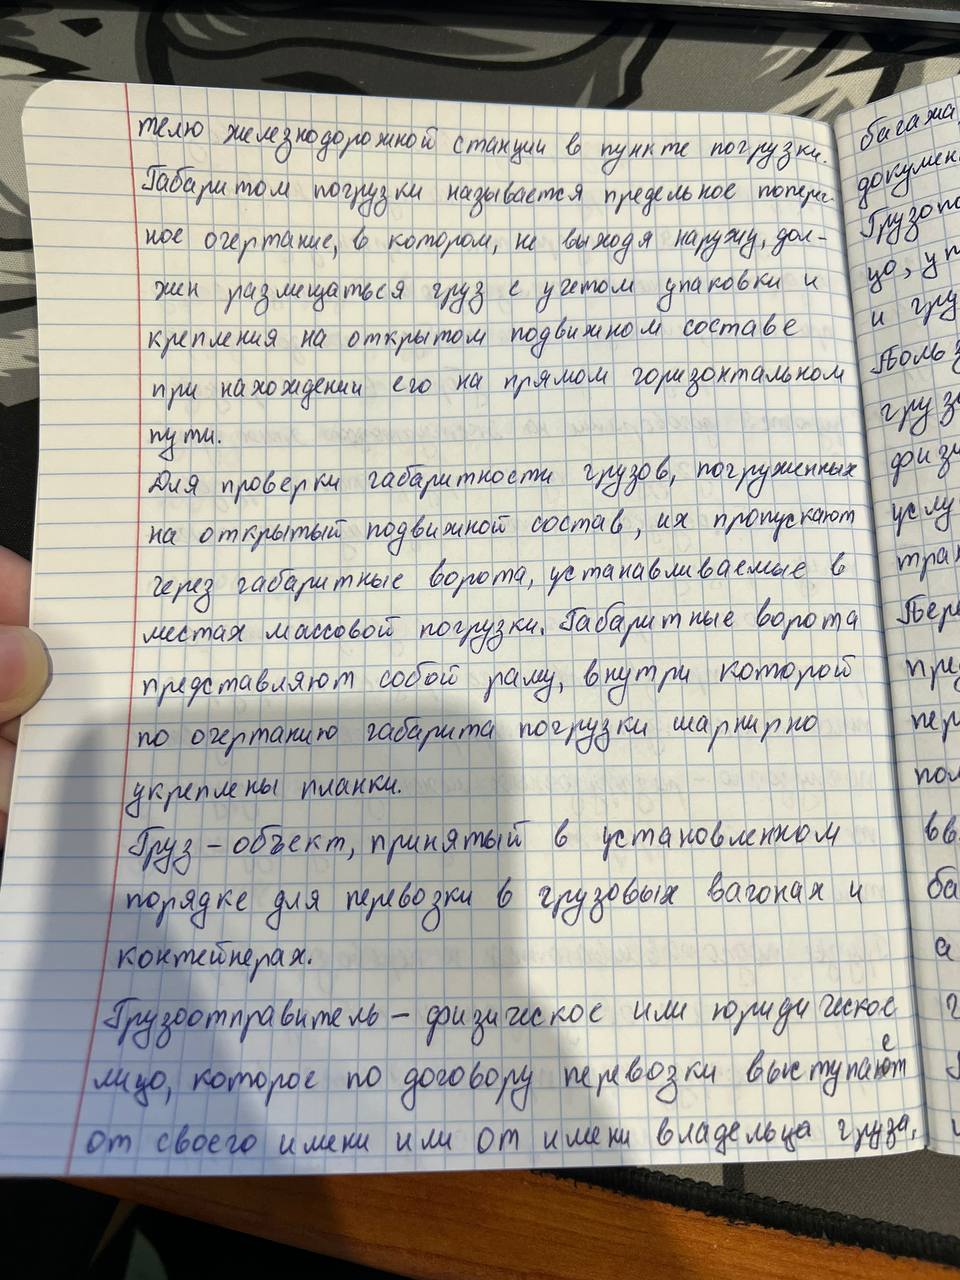 телю железнодорожной станции в пункте погрузки.
Габаритом погрузки называется предельное попереч-
ное очертание, в котором, не выходя наружу, дол-
жен размещаться груз с учетом упаковки и
крепления на открытом подвижном составе
при нахождении его на прямом горизонтальном
пути.
Для проверки габаритности грузов, погруженных
на открытый подвижной состав, их пропускают
через габаритные ворота, устанавливаемые в
местах массовой погрузки. Габаритные ворота
представляют собой раму, внутри которой
по очертанию габарита погрузки шарнирно
укреплены планки.
Груз – объект, принятый в установленном
порядке для перевозки в грузовых вагонах и
контейнерах.
Грузоотправитель – физическое или юридическое
лицо, которое по договору перевозки выступает
от своего имени или от имени владельца груза,
багажа,
и
а